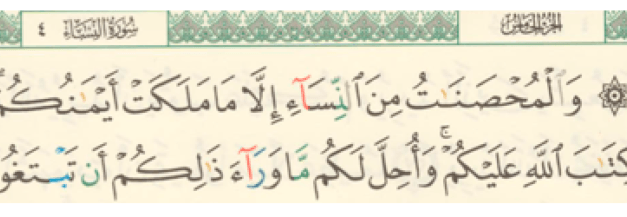 سُورَةُ النِّسَاءِ ٤ الجُزْءُ الخَامِسُ
۞ وَٱلْمُحْصَنَـٰتُ مِنَ ٱلنِّسَآءِ إِلَّا مَا مَلَكَتْ أَيْمَـٰنُكُمْ
كِتَـٰبَ ٱللَّهِ عَلَيْكُمْ ۚ وَأُحِلَّ لَكُم مَّا وَرَآءَ ذَٰلِكُمْ أَن تَبْتَغُوا